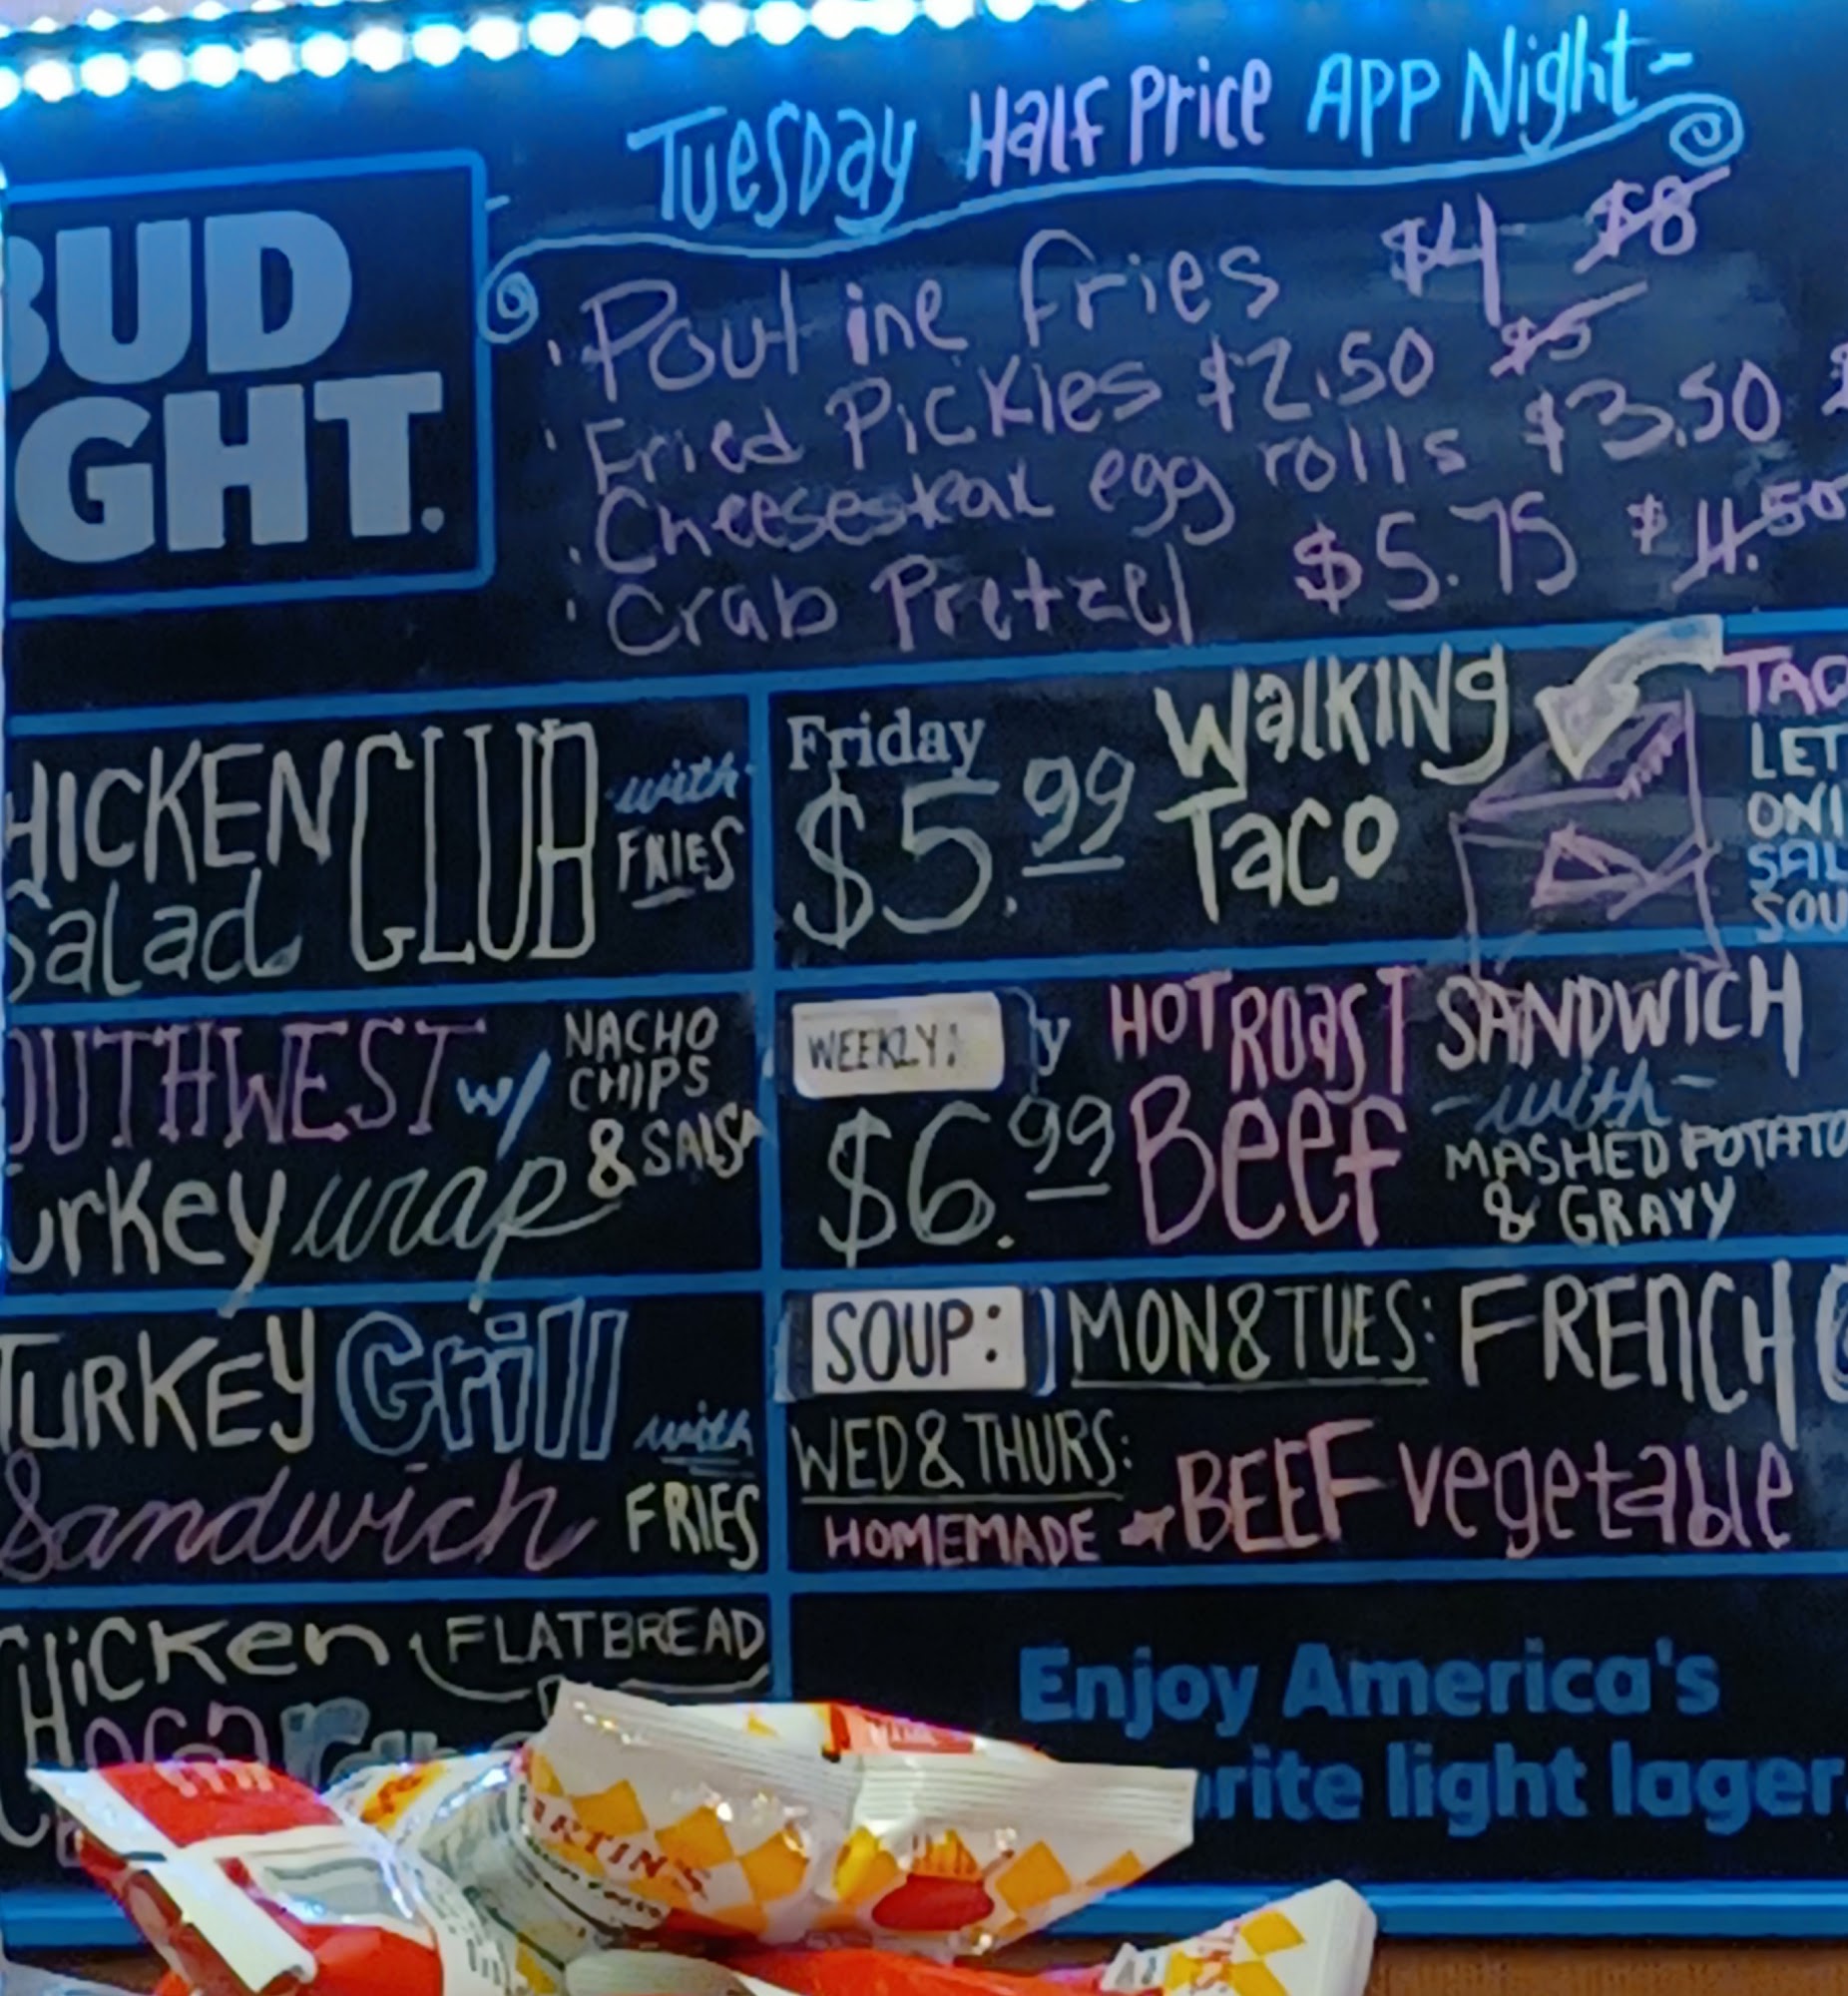 Tuesday Half Price App Night-
BUD
GHT.
· Poutine fries $4 $8
· Fried Pickles $2.50 $5
· Cheesesteak egg rolls $3.50 $
· Crab Pretzel $5.75 $11.50
HICKEN CLUB with
Salad FRIES
Friday Walking
$5.99 Taco
TAC
LET
ONI
SAL
SOU
OUTHWEST w/ NACHO
CHIPS
& SALSA
urkey wrap
WEEKLY! y HOT ROAST SANDWICH
$6.99 Beef -with-
MASHED POTATO
& GRAVY
TURKEY Grill with
Sandwich FRIES
SOUP: MON & TUES: FRENCH
WED & THURS:
HOMEMADE BEEF vegetable
CHicken FLATBREAD
Enjoy America's
rite light lager
ARTIN'S